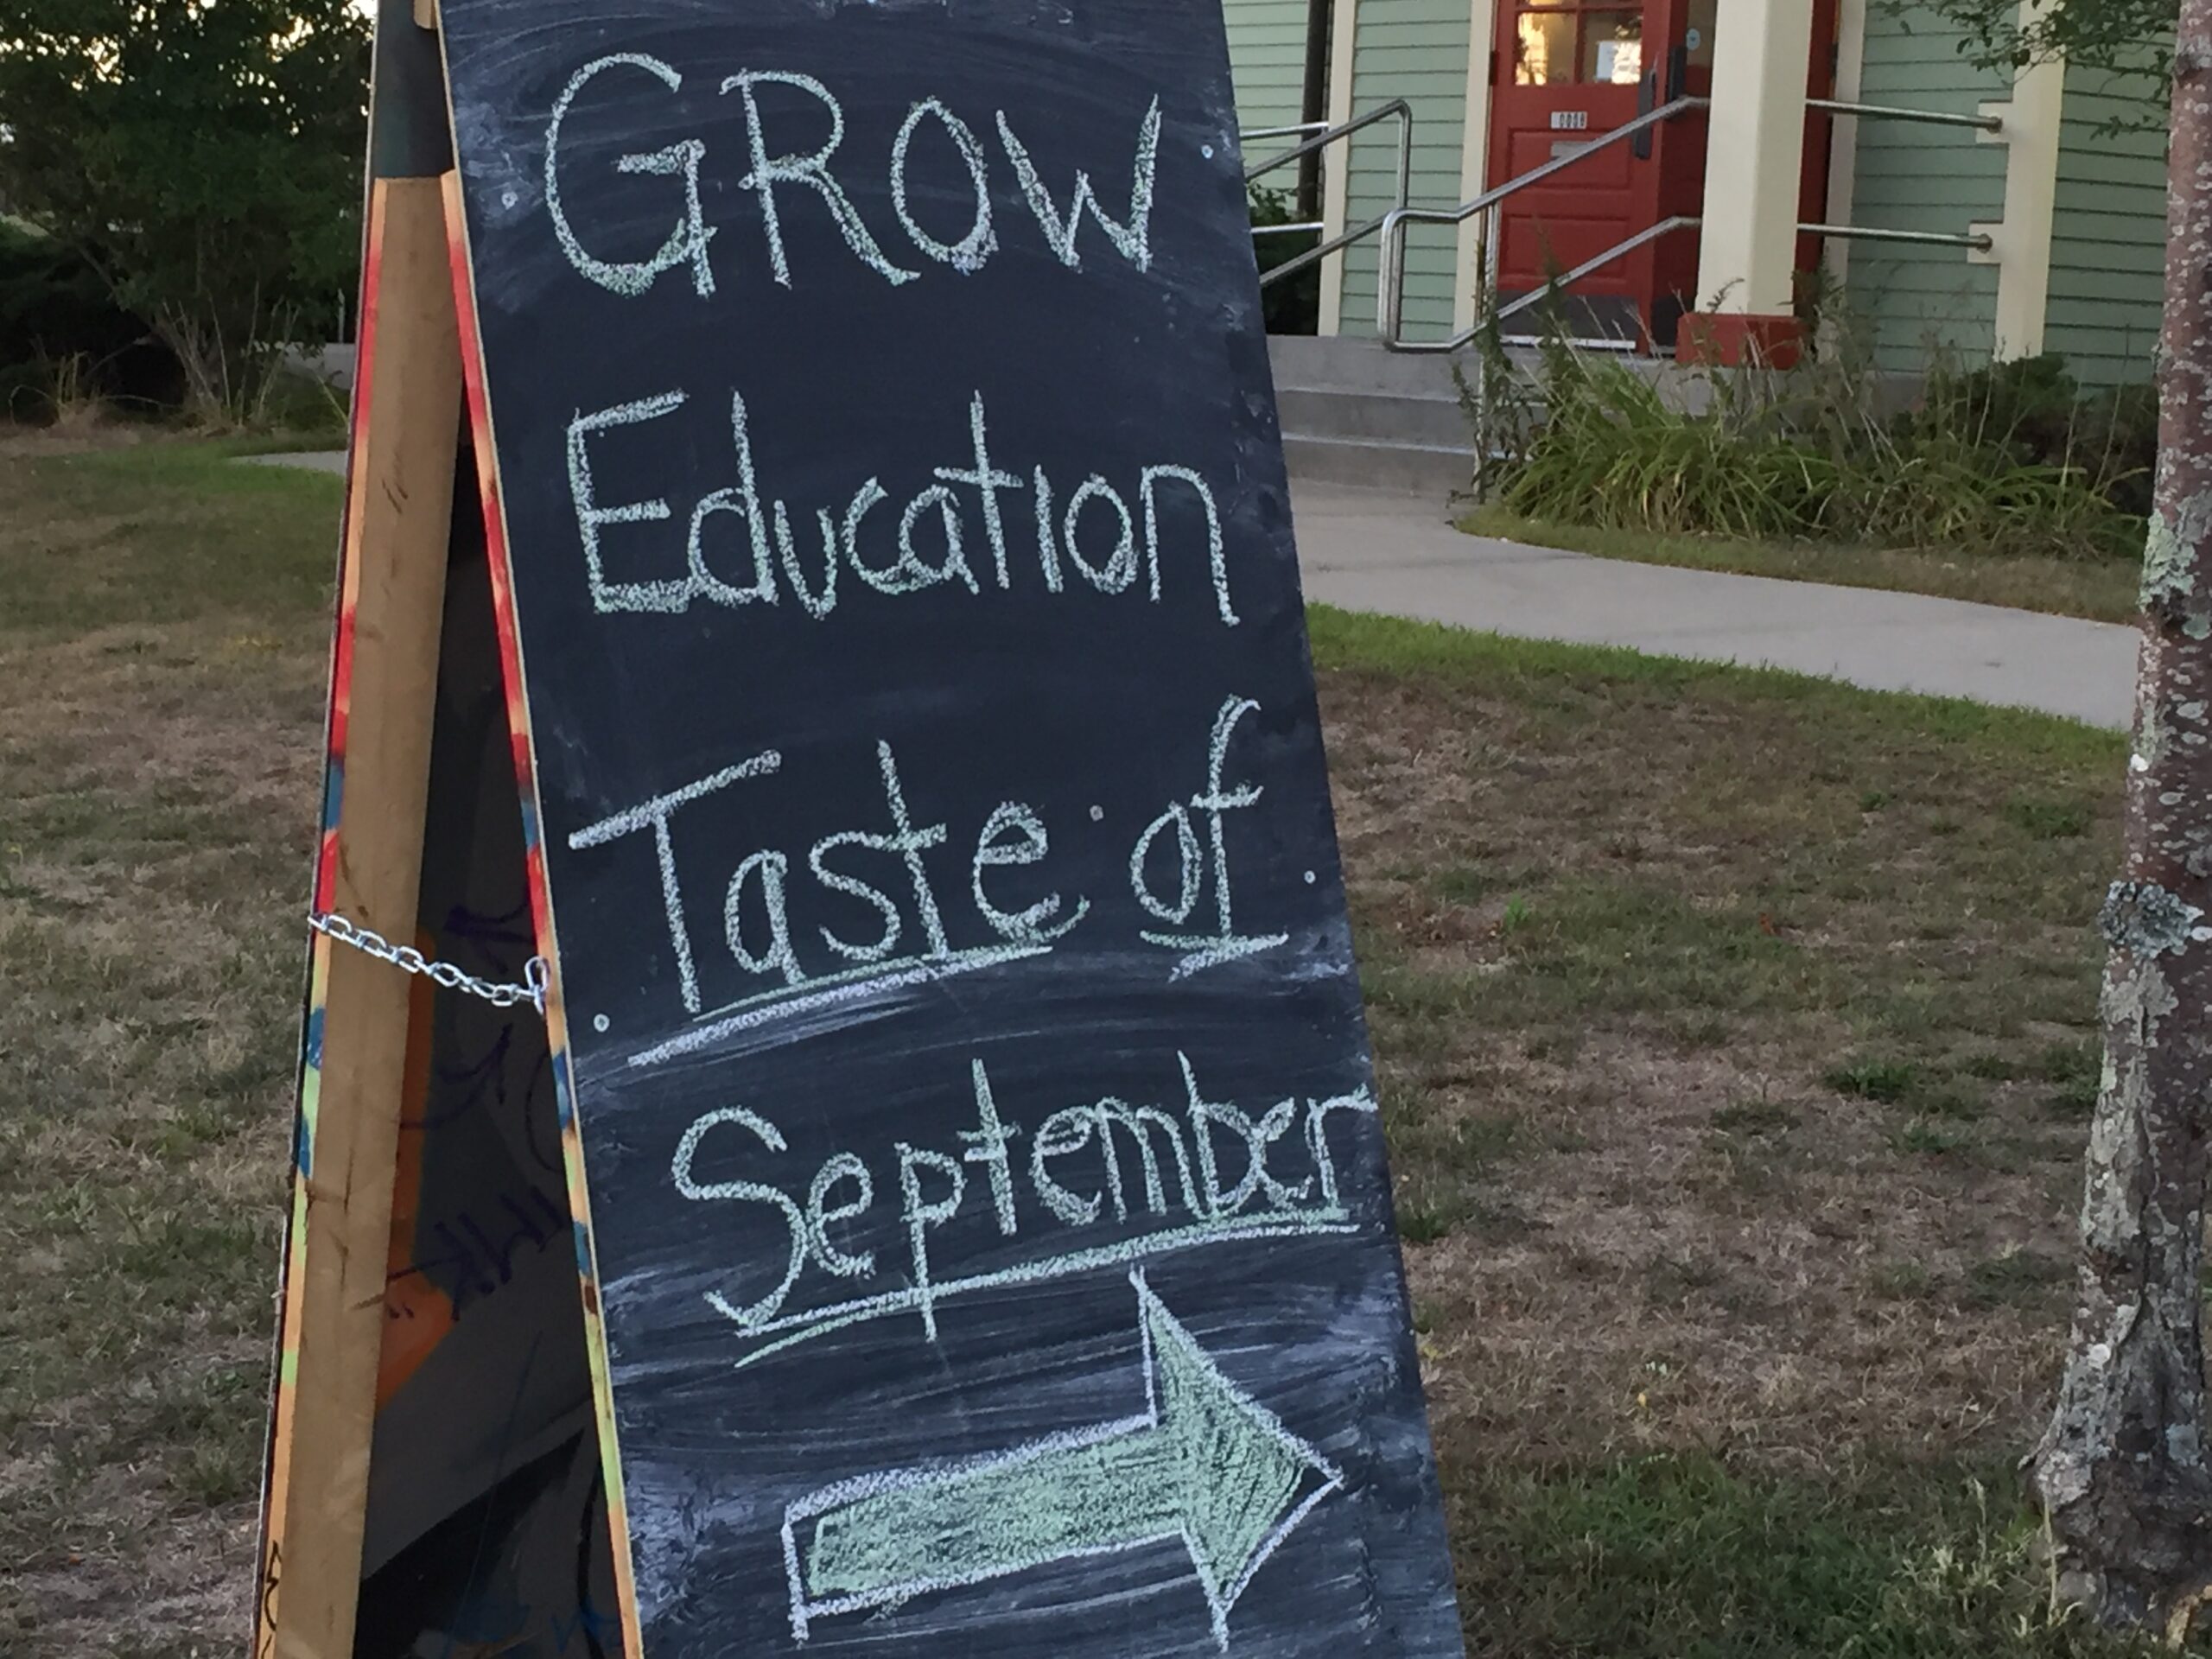 GROW
Education
Taste of
September